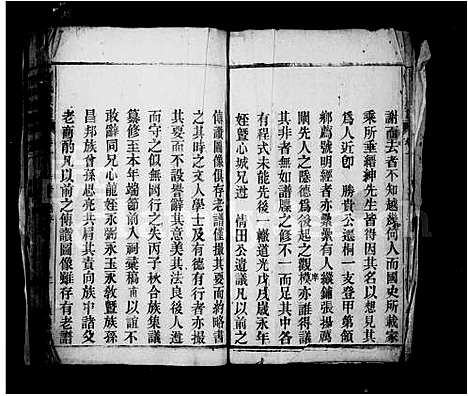 謝而去者不知越幾何人而國史所載家
乘所垂縉紳先生皆得因其名以想見其
為人近即 勝貴公遷桐一支登甲第領
鄉薦號明經者亦纍纍有人鐵鋪張揚萬
關先人之隱德為後起之觀標亦誰得議
其非者無如譜牒之修不一而足其中各
有程式未能先後一轍道光戊戌歲永年
姪暨心城兄遵 倩田公遺議凡以前之
傳讚圖像俱存老譜僅撮其要而約略書
之其時之文人學士及有德有行者亦撮
其要而不設譽辭其意美其法良後人遵
而守之似無岡行之失丙子秋合族集議
纂修至本年端節前入祠彙稿 甫以誼不
敢辭同兄心龍姪永弼永玉永敎暨族孫
昌邦族曾孫思亮共肩其責向族中諸父
老商酌凡以前之傳讚圖像雖存有老譜